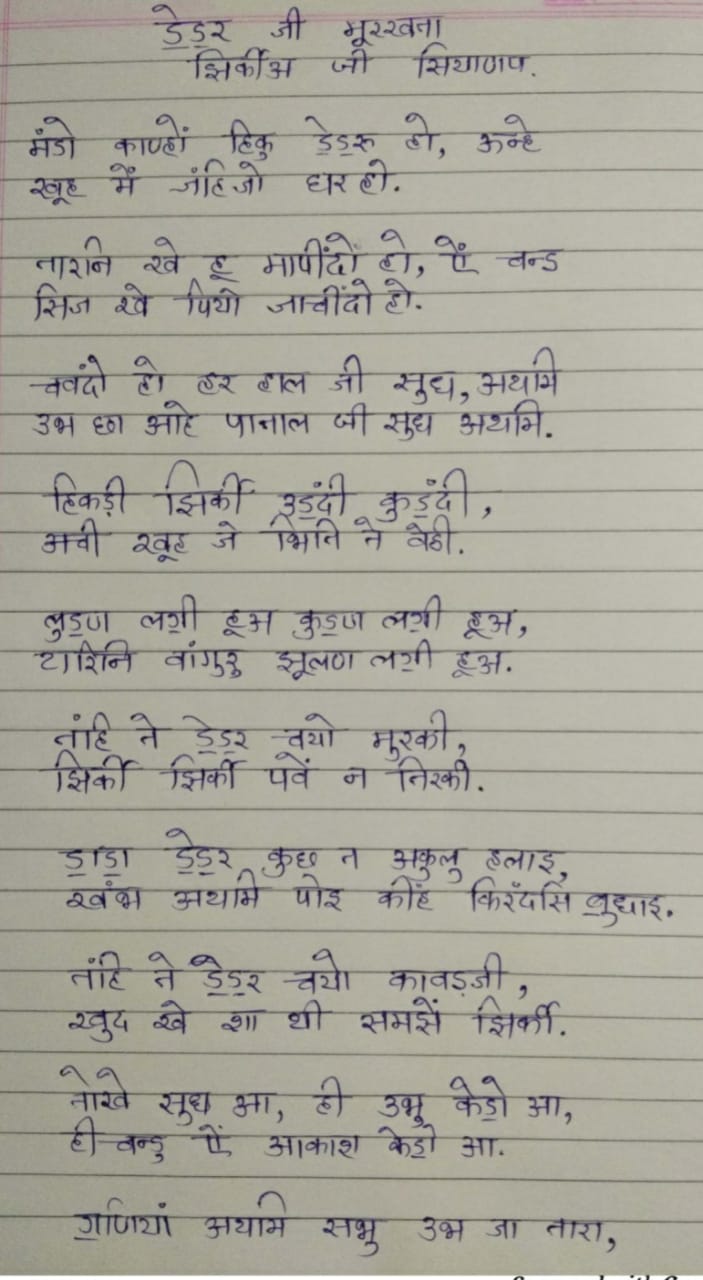 ॾेॾर जी मूरखता
झिर्कीअ जी सियाणप.
मंडो काण्हों हिकु ॾेॾरु हो, ऊन्हे
खूह में जंहिजो घर हो.
तारनि खे हू मापींदो हो, ऐं चन्ड
सिज खे पियो जाचींदो हो.
चवंदो हो हर हाल जी सुध, अथमि
उभ छा आहे पाताल जी सुध अथमि.
हिकड़ी झिर्की उॾंदी कुॾंदी,
अची खूह जे भिति ते वेठी.
लुॾण लॻी हूअ कुॾण लॻी हूअ,
टारिनि वांगुरु झूलण लॻी हूअ.
तंहि ते ॾेॾर चयो मुरकी,
झिर्की झिर्की पवें न तिरकी.
ॾाॾा ॾेॾर कुछ न अकुलु हलाइ,
खंभ अथमि पोइ कींह किरंदसि ॿुधाइ.
तंहि ते ॾेॾर चयो कावड़जी,
खुद खे शा थी समझें झिर्की.
तोखे सुध आ, ही उभु केॾो आ,
ही चन्डु ऐं आकाश केॾो आ.
ॻणियां अथमि सभु उभ जा तारा,